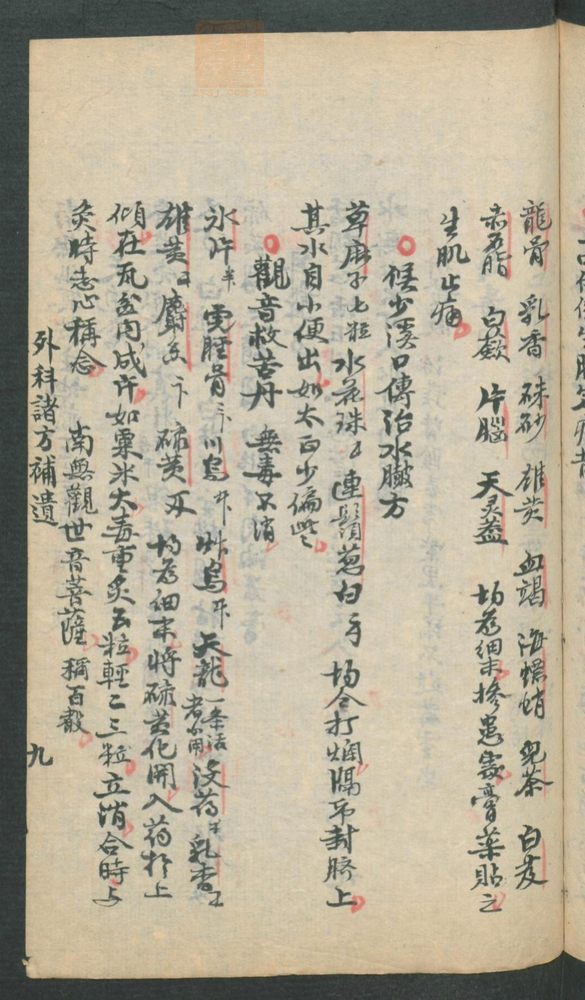 龍骨 乳香 硃砂 雄黄 血竭 海螵蛸 児茶 白芨
赤石脂 白蘞 片腦 天灵盖 均為細末摻患處膏葯貼之
生肌止痛
侯少溪口傳治水臌方
草麻子七粒 水花珠 連鬚葱白 均合打爛隔布封臍上
其水自小便出如太西少偏些
觀音救苦丹 無毒不消
氷片 虎脛骨 川烏 艸烏 天龍一条活者不用 没药 乳香
雄黄 麝香 硫黄 均為細末将硫黄化開入葯於上
傾在瓦盆内成片如粟米大毒重炙五粒輕二三粒立消合時与
炙時志心稱念 南無觀世音菩薩 稱百聲
外科諸方補遺 九